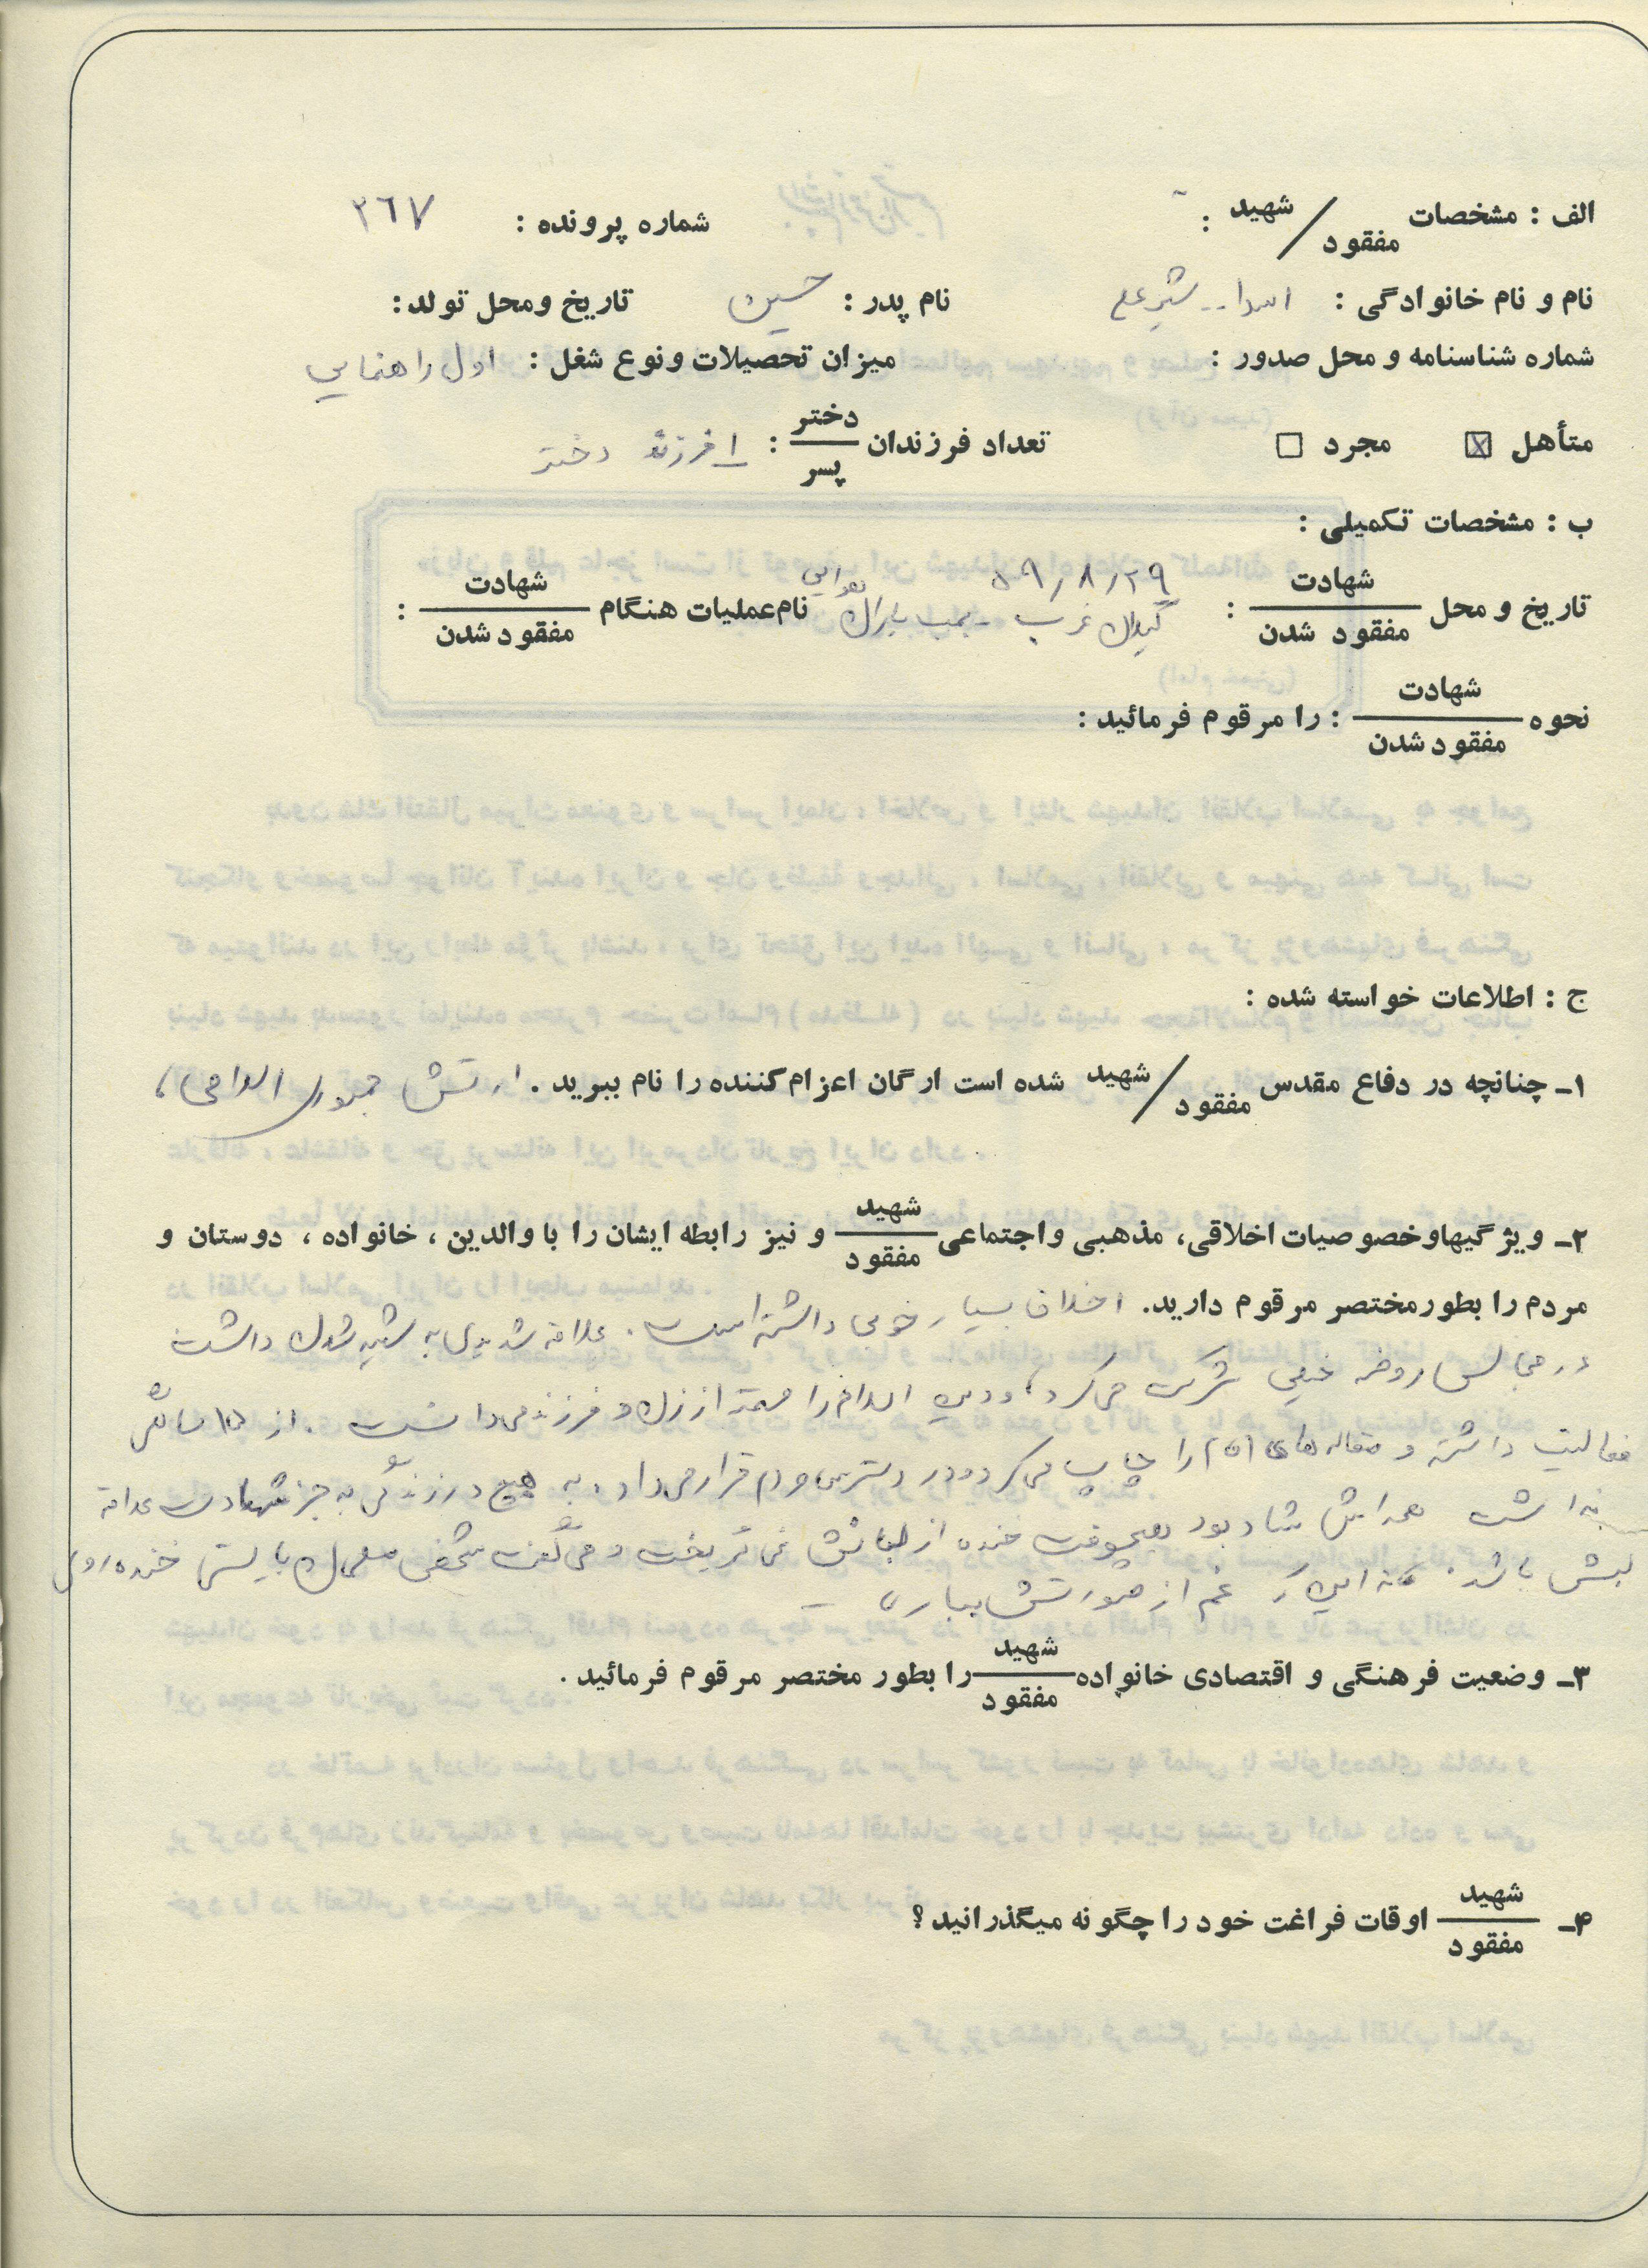 الف : مشخصات شهید / مفقود : شماره پرونده : ۲۶۷
نام و نام خانوادگی : اسدا.. شیرعلی نام پدر : حسین تاریخ ومحل تولد:
شماره شناسنامه و محل صدور : میزان تحصیلات ونوع شغل : اول راهنمایی
متأهل ☒ مجرد ☐ تعداد فرزندان دختر / پسر : ۱ فرزند دختر
ب : مشخصات تکمیلی :
تاریخ و محل شهادت / مفقود شدن : ۵۹/۸/۲۹ گیلان غرب - بمب باران هوایی نام عملیات هنگام شهادت / مفقود شدن :
نحوه شهادت / مفقود شدن : را مرقوم فرمائید :
ج : اطلاعات خواسته شده :
۱ـ چنانچه در دفاع مقدس شهید / مفقود شده است ارگان اعزام کننده را نام ببرید . ارتش جمهوری اسلامی
۲ـ ویژگیهاوخصوصیات اخلاقی، مذهبی واجتماعی شهید / مفقود و نیز رابطه ایشان را با والدین ، خانواده ، دوستان و
مردم را بطورمختصر مرقوم دارید. اخلاق بسیار خوبی داشته است . علاقه شدیدی به شهید شدن داشت
در مجالس روضه خیلی شرکت می کرد ، و دین اسلام را مهمتر از زن و فرزند می دانست . از ۱۵ سالگی
فعالیت داشته و مقاله های را چاپ می کرد و در دسترس مردم قرار می داد . به هیچ در زندگی به جز شهادت علاقه
نداشت همه اش شاد بود هیچوقت خنده از لبانش نمی گریخت و می گفت شخص مسلمان بایستی خنده روی
لبش باشد . نه این که غم از صورتش ببارد
۳ـ وضعیت فرهنگی و اقتصادی خانواده شهید / مفقود را بطور مختصر مرقوم فرمائید .
۴ـ شهید / مفقود اوقات فراغت خود را چگونه میگذرانید ؟